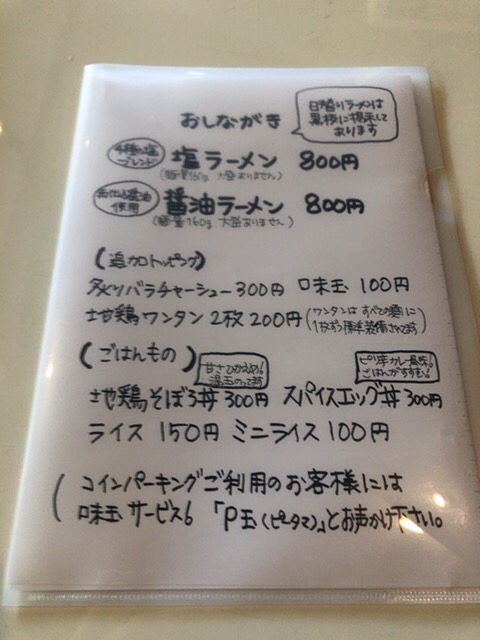 おしながき
日替りラーメンは
黒板に掲示して
あります
4種の塩
ブレンド
塩ラーメン 800円
(麺量160g 大盛ありません)
使用
醤油ラーメン 800円
(麺量160g 大盛ありません)
(追加トッピング)
炙りバラチャーシュー300円 味玉 100円
地鶏ワンタン 2枚200円 (ワンタンは すべての麺に
1枚ずつ標準装備されてます)
(ごはんもの)
甘さひかえめ!
温玉のってます
ピリ辛カレー風味。
ごはんがすすむ!
地鶏そぼろ丼300円 スパイスエッグ丼300円
ライス 150円 ミニライス 100円
(コインパーキングご利用のお客様には
味玉サービス6 「P玉(ピータマ)」とお声かけ下さい。